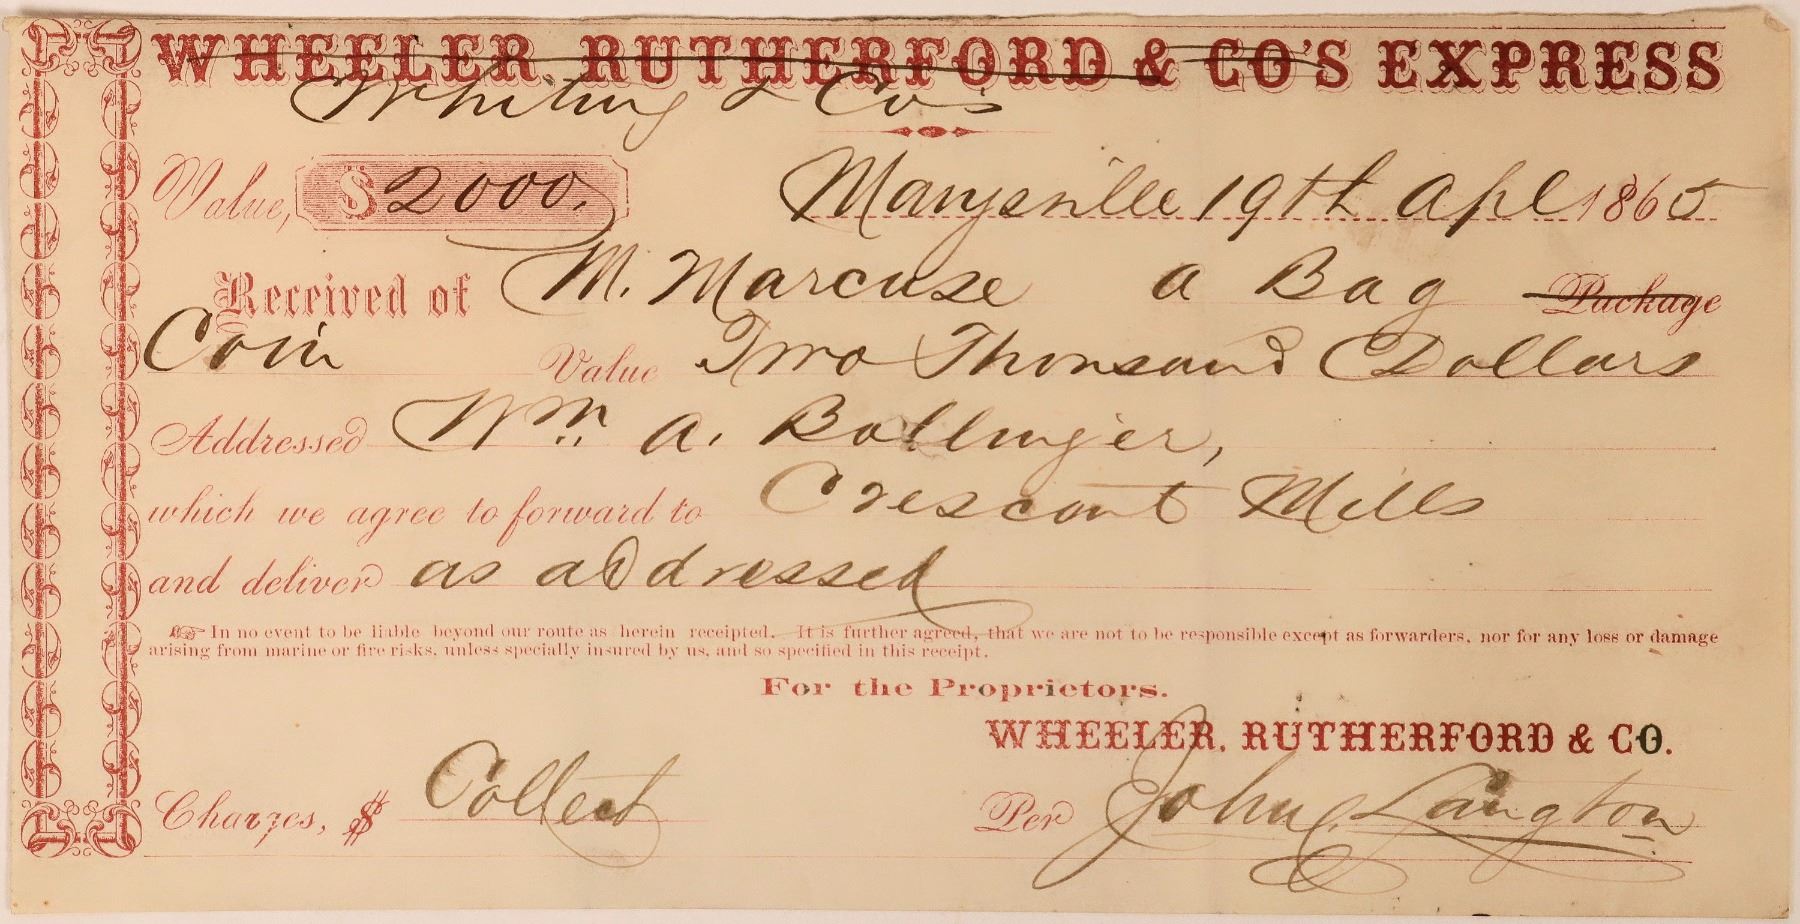 WHEELER, RUTHERFORD & CO'S EXPRESS
Whiting & Co's
Value, $ 2000. Marysville 19th Apl 1865
Received of M. Marcuse a Bag Package
Coin Value Two Thousand Dollars
Addressed Wm A. Bollinger,
which we agree to forward to Crescent Mills
and deliver as addressed
In no event to be liable beyond our route as herein receipted. It is further agreed, that we are not to be responsible except as forwarders, nor for any loss or damage
arising from marine or fire risks, unless specially insured by us, and so specified in this receipt.
For the Proprietors.
WHEELER, RUTHERFORD & CO.
Charges, $ Collect Per John C. Langton